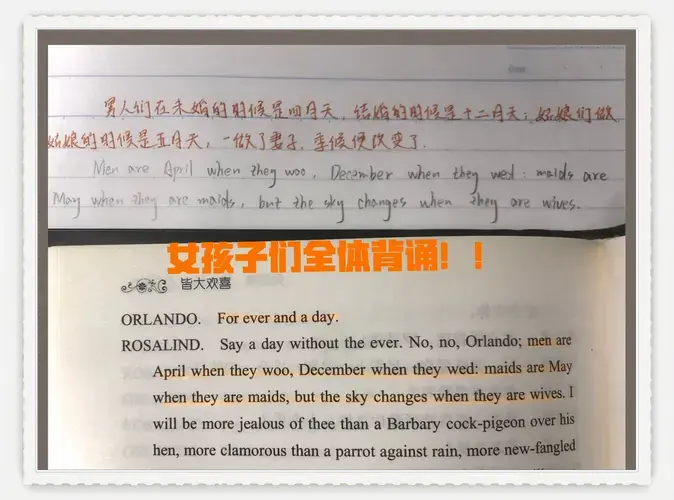 男人们在未婚的时候是四月天，结婚的时候是十二月天；姑娘们做
姑娘的时候是五月天，一做了妻子，季候便改变了．
Men are April when they woo, December when they wed: maids are
May when they are maids, but the sky changes when they are wives.
女孩子们全体背诵！！
皆大欢喜
ORLANDO. For ever and a day.
ROSALIND. Say a day without the ever. No, no, Orlando; men are
April when they woo, December when they wed: maids are May
when they are maids, but the sky changes when they are wives. I
will be more jealous of thee than a Barbary cock-pigeon over his
hen, more clamorous than a parrot against rain, more new-fangled